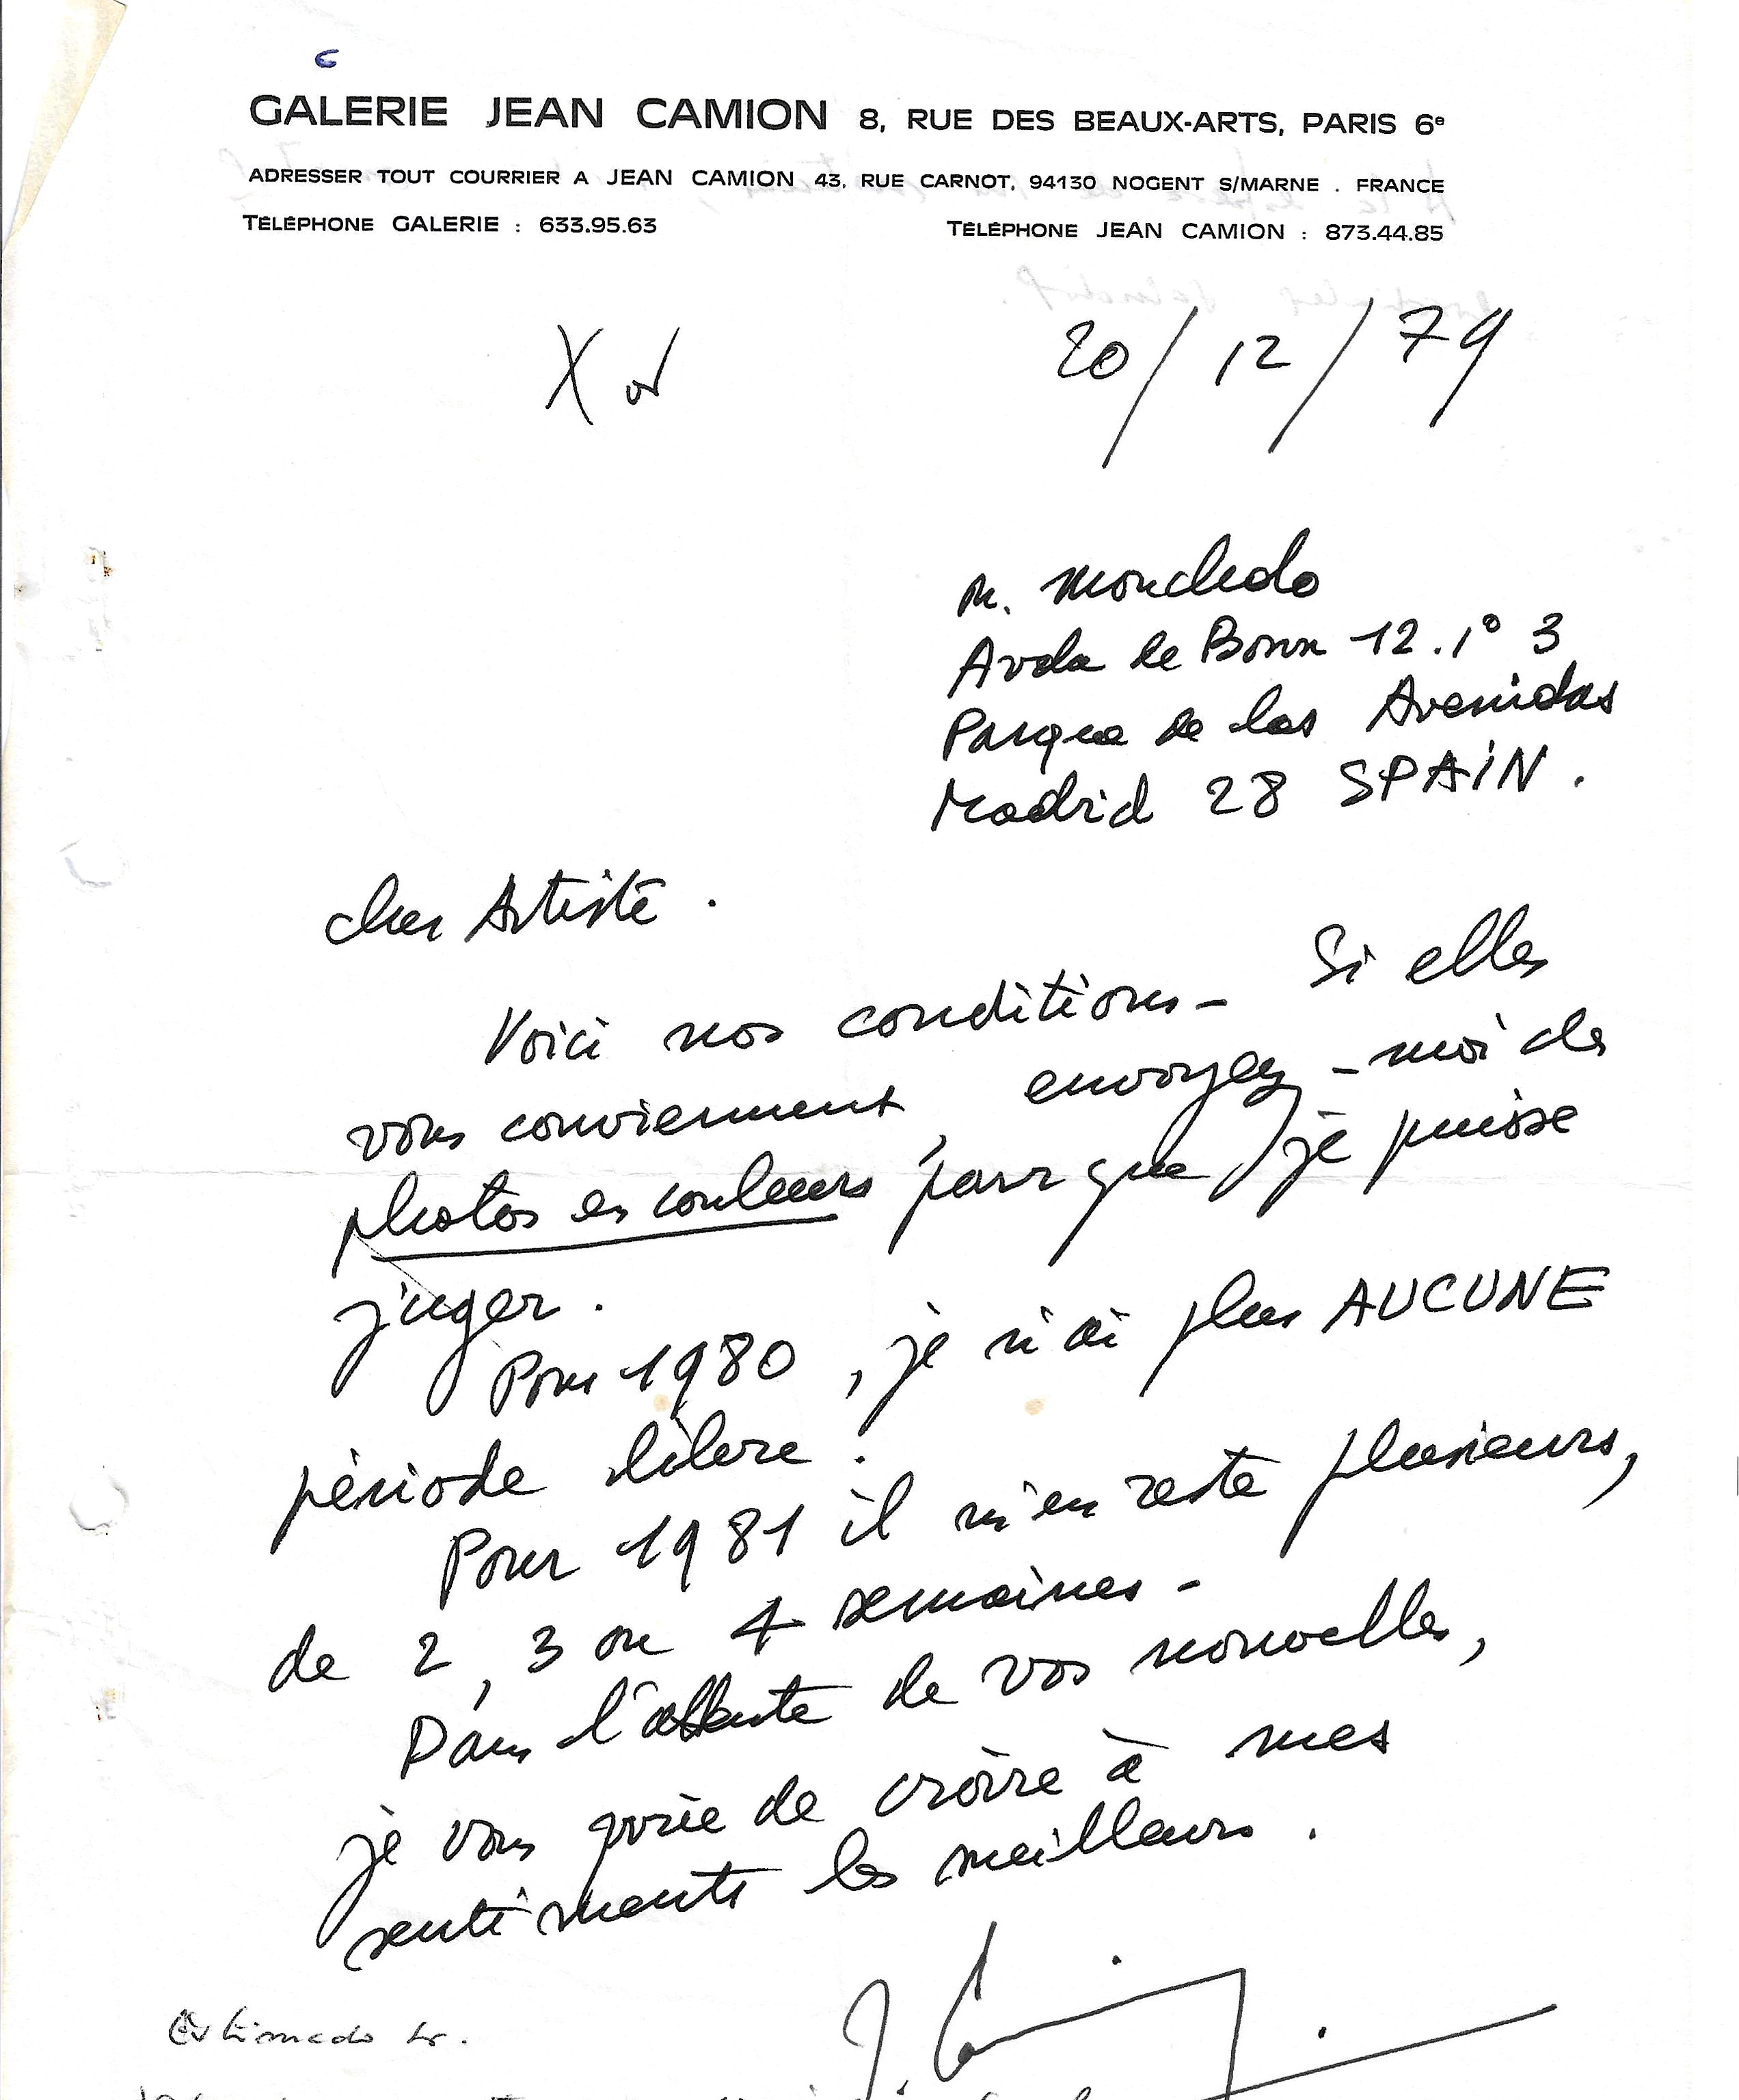 GALERIE JEAN CAMION 8, RUE DES BEAUX-ARTS, PARIS 6e
ADRESSER TOUT COURRIER A JEAN CAMION 43, RUE CARNOT, 94130 NOGENT S/MARNE . FRANCE
TÉLÉPHONE GALERIE : 633.95.63 TÉLÉPHONE JEAN CAMION : 873.44.85
20/12/79
M. Monchedo
Avda de Bonn 12.1° 3
Parque de las Avenidas
Madrid 28 SPAIN.
cher Artiste.
Voici nos conditions - Si elles
vous conviennent, envoyez-moi des
photos en couleurs pour que je puisse
juger.
Pour 1980, je n'ai plus AUCUNE
période libre.
Pour 1981 il m'en reste plusieurs,
de 2, 3 ou 4 semaines -
Dans l'attente de vos nouvelles,
je vous prie de croire à mes
sentiments les meilleurs.
J. Camion
Estimado Sr.